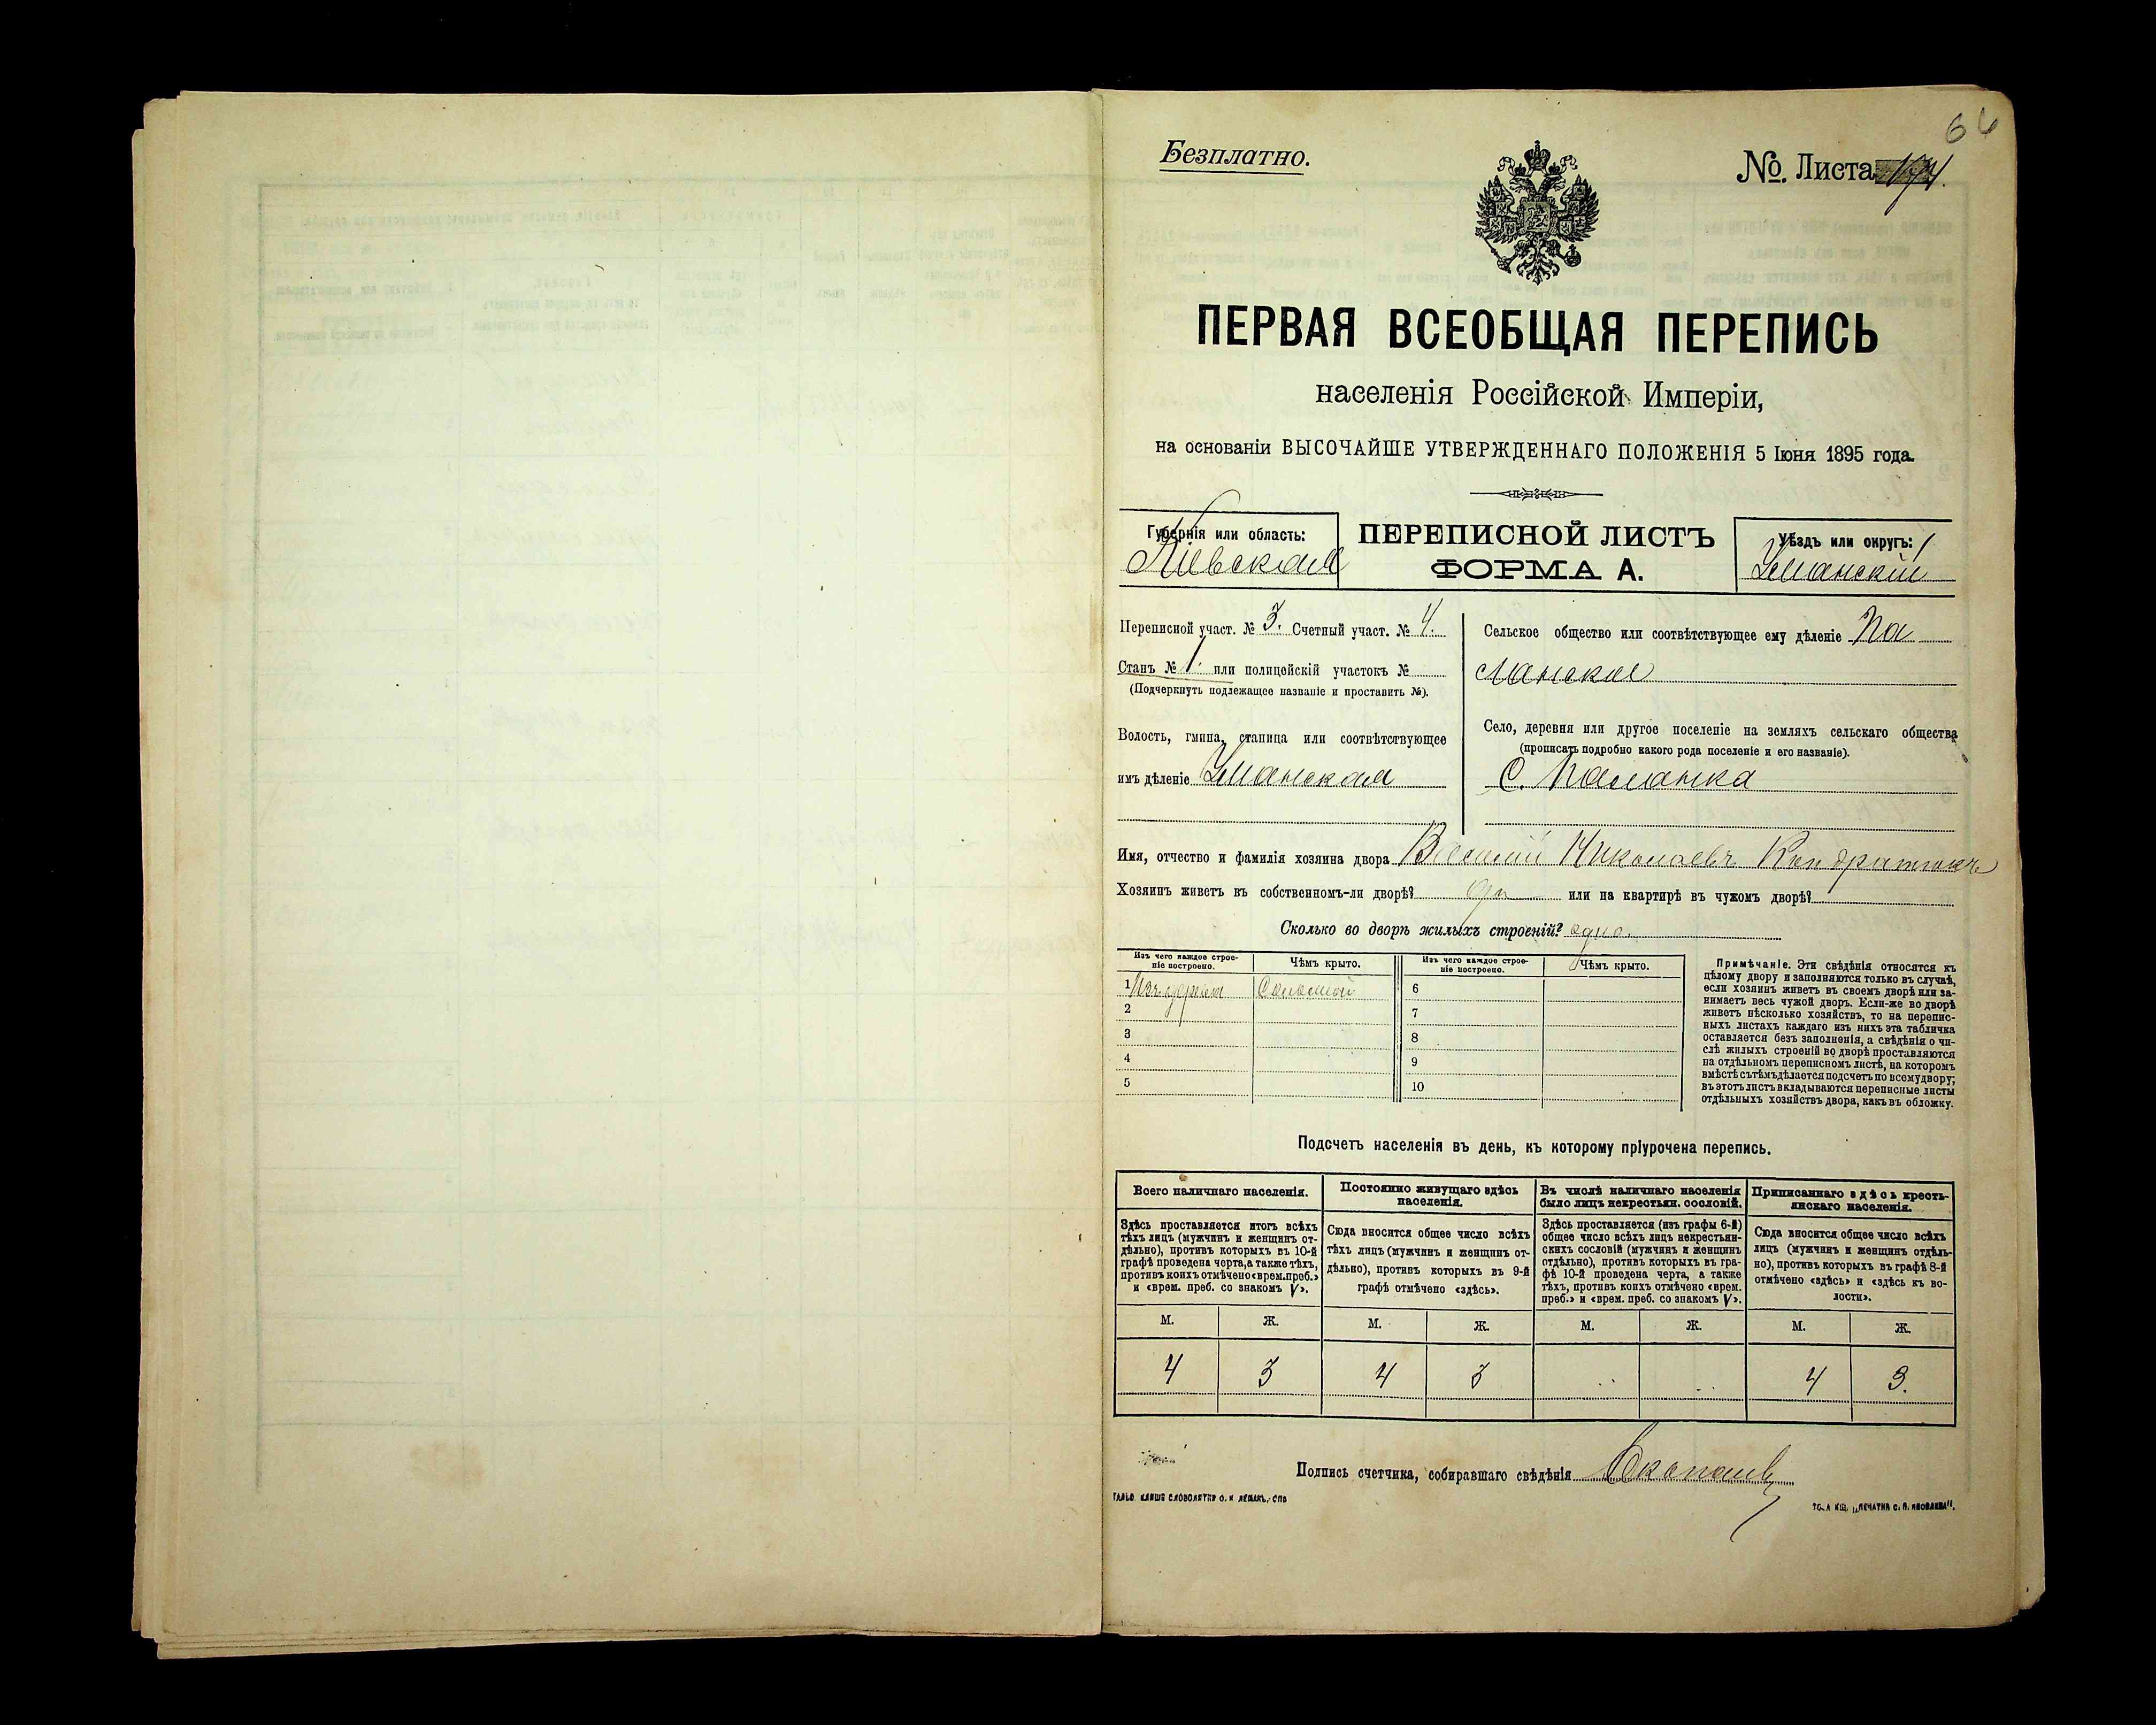 66
Безплатно.
№ Листа 174.
ПЕРВАЯ ВСЕОБЩАЯ ПЕРЕПИСЬ
населенія Россійской Имперіи,
на основаніи ВЫСОЧАЙШЕ УТВЕРЖДЕННАГО ПОЛОЖЕНІЯ 5 Іюня 1895 года.
Губернія или область:
Кіевская
ПЕРЕПИСНОЙ ЛИСТЪ
ФОРМА А.
Уѣздъ или округъ:
Уманскій
Переписной участ. № 3. Счетный участ. № 4.
Станъ № 1. или полицейскій участокъ №
(Подчеркнуть подлежащее названіе и проставить №).
Волость, гмина, станица или соотвѣтствующее
имъ дѣленіе Уманская
Сельское общество или соотвѣтствующее ему дѣленіе Па
ланское
Село, деревня или другое поселеніе на земляхъ сельскаго общества
(прописать подробно какого рода поселеніе и его названіе).
С. Паланка
Имя, отчество и фамилія хозяина двора Василій Николаевъ Кондратюкъ
Хозяинъ живетъ въ собственномъ-ли дворѣ? да или на квартирѣ въ чужомъ дворѣ?
Сколько во дворѣ жилыхъ строеній? одно.
Изъ чего каждое строе-
ніе построено.
Чѣмъ крыто.
Изъ чего каждое строе-
ніе построено.
Чѣмъ крыто.
1 Изъ дерева Соломой
2
3
4
5
6
7
8
9
10
Примѣчаніе. Эти свѣдѣнія относятся къ
цѣлому двору и заполняются только въ случаѣ,
если хозяинъ живетъ въ своемъ дворѣ или за-
нимаетъ весь чужой дворъ. Если-же во дворѣ
живетъ нѣсколько хозяйствъ, то на перепис-
ныхъ листахъ каждаго изъ нихъ эта табличка
оставляется безъ заполненія, а свѣдѣнія о чи-
слѣ жилыхъ строеній во дворѣ проставляются
на отдѣльномъ переписномъ листѣ, на которомъ
вмѣстѣ съ тѣмъ дѣлается подсчетъ по всему двору;
въ этотъ листъ вкладываются переписные листы
отдѣльныхъ хозяйствъ двора, какъ въ обложку.
Подсчетъ населенія въ день, къ которому пріурочена перепись.
Всего наличнаго населенія.
Здѣсь проставляется итогъ всѣхъ
тѣхъ лицъ (мужчинъ и женщинъ от-
дѣльно), противъ которыхъ въ 10-й
графѣ проведена черта, а также тѣхъ,
противъ коихъ отмѣчено «врем. преб.»
и «врем. преб. со знакомъ V».
Постоянно живущаго здѣсь
населенія.
Сюда вносится общее число всѣхъ
тѣхъ лицъ (мужчинъ и женщинъ от-
дѣльно), противъ которыхъ въ 9-й
графѣ отмѣчено «здѣсь».
Въ числѣ наличнаго населенія
было лицъ некрестьян. сословій.
Здѣсь проставляется (изъ графы 6-й)
общее число всѣхъ лицъ некрестьян-
скихъ сословій (мужчинъ и женщинъ
отдѣльно), противъ которыхъ въ гра-
фѣ 10-й проведена черта, а также
тѣхъ, противъ коихъ отмѣчено «врем.
преб.» и «врем. преб. со знакомъ V».
Приписаннаго здѣсь кресть-
янскаго населенія.
Сюда вносится общее число всѣхъ
лицъ (мужчинъ и женщинъ отдѣль-
но), противъ которыхъ въ графѣ 8-й
отмѣчено «здѣсь» и «здѣсь къ во-
лости».
М. Ж. М. Ж. М. Ж. М. Ж.
4 3 4 3 .. .. 4 3.
Подпись счетчика, собиравшаго свѣдѣнія